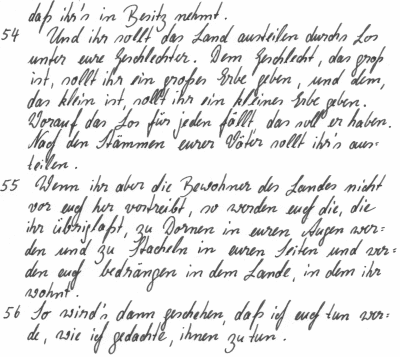 daß ihr's in Besitz nehmt.
54 Und ihr sollt das Land austeilen durchs Los
unter eure Geschlechter. Dem Geschlecht, das groß
ist, sollt ihr ein großes Erbe geben, und dem,
das klein ist, sollt ihr ein kleines Erbe geben.
Worauf das Los für jeden fällt, das soll er haben.
Nach den Stämmen eurer Väter sollt ihr's aus=
teilen.
55 Wenn ihr aber die Bewohner des Landes nicht
vor euch her vertreibt, so werden euch die, die
ihr übriglaßt, zu Dornen in euren Augen wer=
den und zu Stacheln in euren Seiten und wer=
den euch bedrängen in dem Lande, in dem ihr
wohnt.
56 So wird's dann geschehen, daß ich euch tun wer=
de, wie ich gedachte, ihnen zu tun.